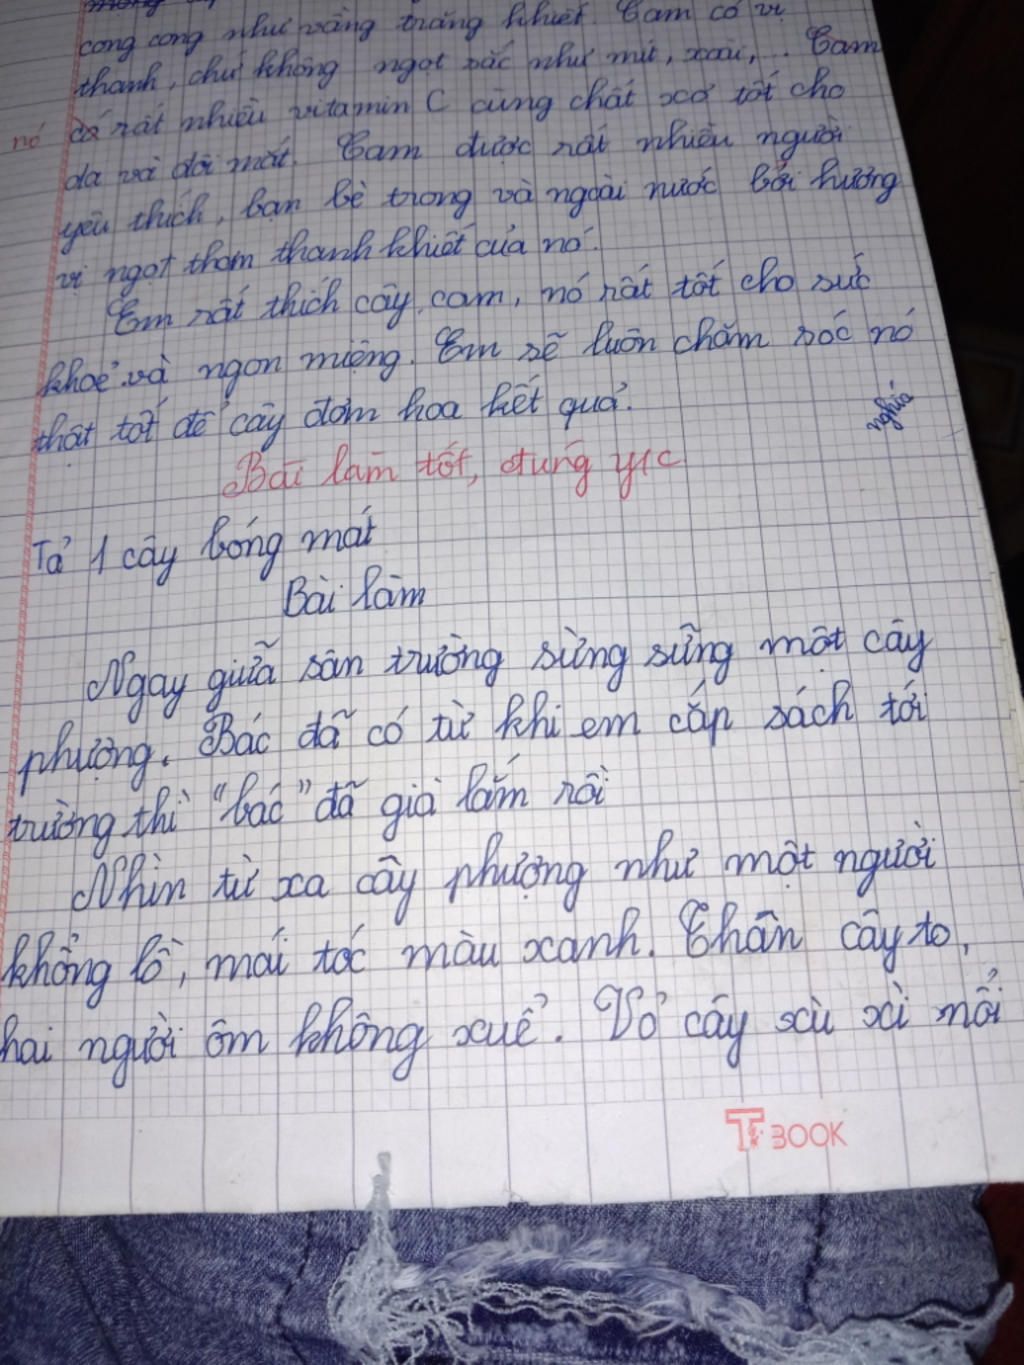 cong cong như vầng trăng khiết. Cam có vị
thanh, chứ không ngọt sắc như mít, xoài,... Cam
nó có rất nhiều vitamin C cùng chất xơ tốt cho
da và đôi mắt. Cam được rất nhiều người
yêu thích, bạn bè trong và ngoài nước bởi hương
vị ngọt thơm thanh khiết của nó.
Em rất thích cây cam, nó rất tốt cho sức
khoẻ và ngon miệng. Em sẽ luôn chăm sóc nó
thật tốt để cây đơm hoa kết quả.
nghĩa
Bài làm tốt, đúng y/c
Tả 1 cây bóng mát
Bài làm
Ngay giữa sân trường sừng sững một cây
phượng. Bác đã có từ khi em cắp sách tới
trường thì "bác" đã già lắm rồi
Nhìn từ xa cây phượng như một người
khổng lồ, mái tóc màu xanh. Thân cây to,
hai người ôm không xuể. Vỏ cây xù xì nổi
BOOK